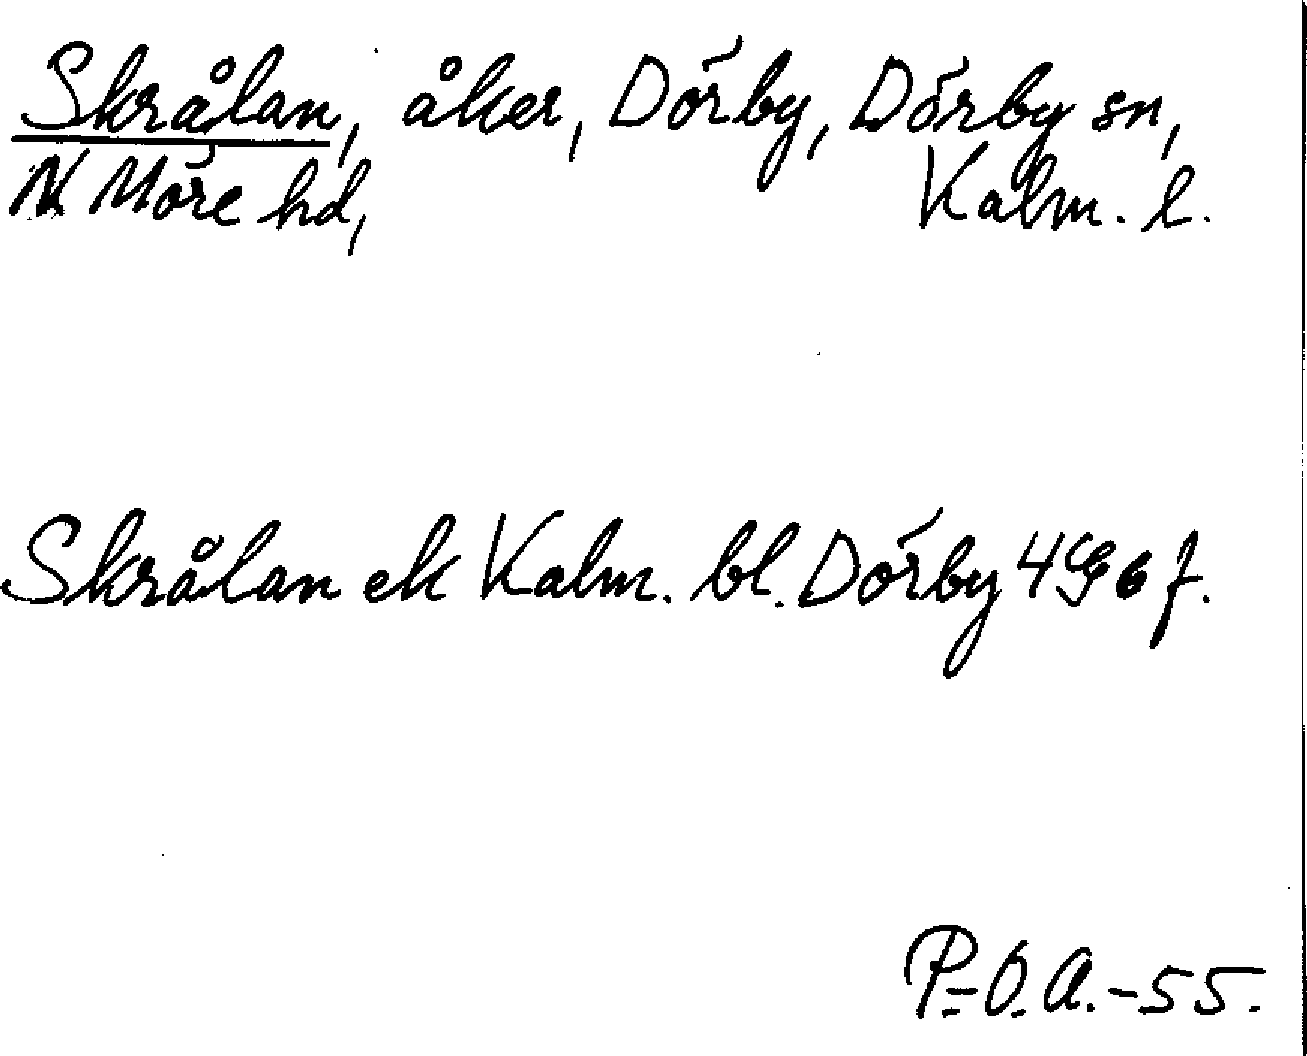 Skrålan, åker, Dörby, Dörby sn,
N Möre hd, Kalm. l.
Skrålan ek Kalm. bl. Dörby 4G6f.
P.-O.A.-55.